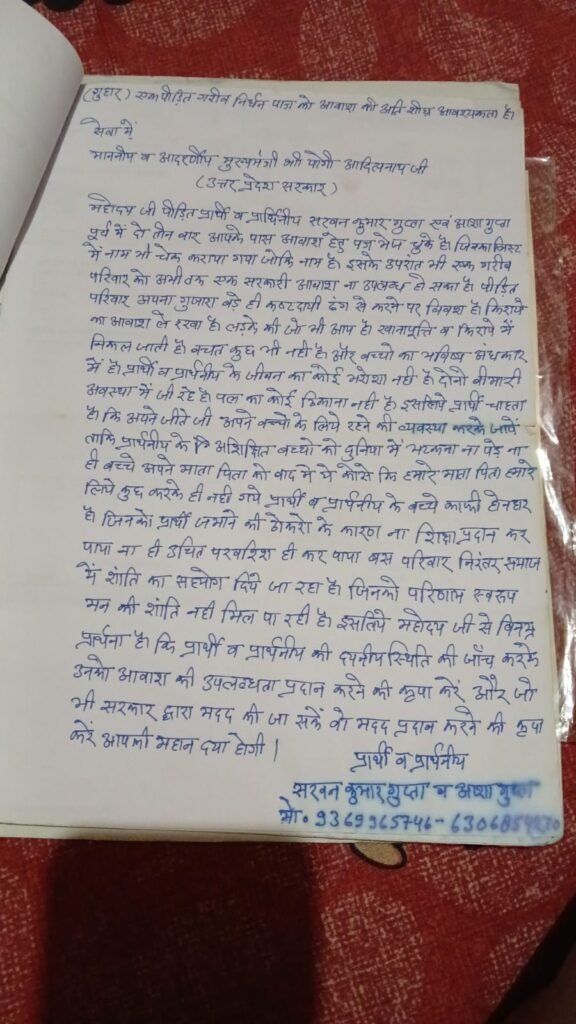 (गुहार) एक पीड़ित गरीब निर्धन पात्र को आवाश की अति शीघ्र आवश्यकता है।
सेवा में
माननीय व आदरर्णीय मुख्यमंत्री श्री योगी आदित्यनाथ जी
(उत्तर प्रदेश सरकार)
महोदय जी पीड़ित प्रार्थी व प्रार्थिनीय सरवन कुमार गुप्ता एवं आशा गुप्ता
पूर्व में दो तीन बार आपके पास आवाश हेतु पत्र भेज चुके है। जिसका लिस्ट
में नाम भी चेक कराया गया जोकि नाम है। इसके उपरांत भी एक गरीब
परिवार को अभी तक एक सरकारी आवाश ना उपलब्ध हो सका है। पीड़ित
परिवार अपना गुजारा बड़े ही कष्टदायी ढंग से करने पर विवश है। किराये
का आवाश ले रखा है। लड़के की जो भी आय है। खानापूर्ति व किराये में
निकल जाती है। बचत कुछ भी नही है। और बच्चो का भविष्य अंधकार
में है। प्रार्थी व प्रार्थनीय के जीवन का कोई भरोशा नही है। दोनो बीमारी
अवस्था में जी रहे है। पल का कोई ठिकाना नही है। इसलिये प्रार्थी चाहता
है। कि अपने जीते जी अपने बच्चो के लिये रहने की व्यवस्था करके जाये
ताकि प्रार्थनीय के अशिक्षित बच्चो को दुनिया में भटकना ना पड़े ना
ही बच्चे अपने माता पिता को बाद में ये कोसे कि हमारे माता पिता हमारे
लिये कुछ करके ही नही गये प्रार्थी व प्रार्थनीय के बच्चे काफी होनहार
है। जिनको प्रार्थी जमाने की ठोकरो के कारण ना शिक्षा प्रदान कर
पाया ना ही उचित परवरिश ही कर पाया बस परिवार निरंतर समाज
में शांति का सहयोग दिये जा रहा है। जिनको परिणाम स्वरूप
मन की शांति नही मिल पा रही है। इसलिये महोदय जी से विनम्र
प्रार्थना है। कि प्रार्थी व प्रार्थनीय की दयनीय स्थिति की जाँच करके
उनको आवाश की उपलब्धता प्रदान करने की कृपा करें और जो
भी सरकार द्वारा मदद की जा सकें वो मदद प्रदान करने की कृपा
करें आपकी महान दया होगी।
प्रार्थी व प्रार्थनीय
सरवन कुमार गुप्ता व आशा गुप्ता
मो. 9369965746 -